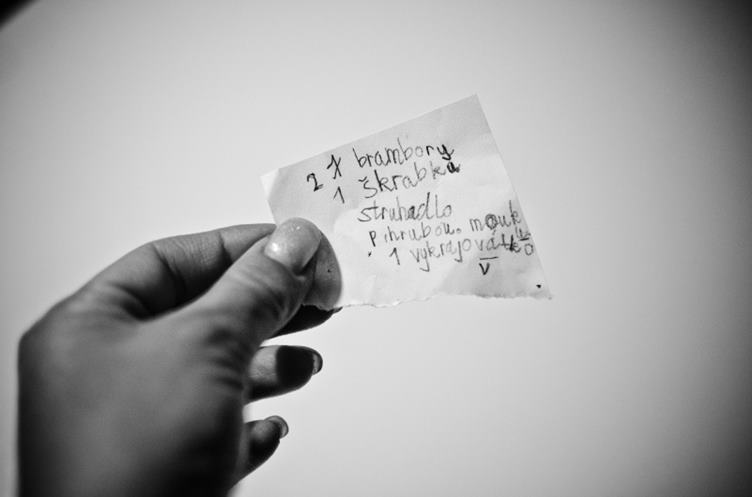 2 brambory
1 škrabku
struhadlo
p.hrubou. mouku
1 vykrajovátko
v